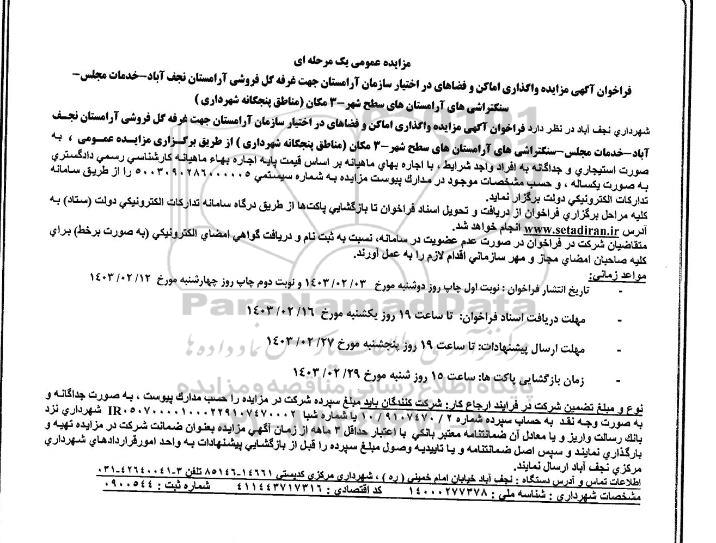 مزایده عمومی یک مرحله ای
فراخوان آگهی مزایده واگذاری اماکن و فضاهای در اختیار سازمان آرامستان جهت غرفه گل فروشی آرامستان نجف آباد-خدمات مجلس-
سنگتراشی های آرامستان های سطح شهر-۳ مکان (مناطق پنجگانه شهرداری )
شهرداري نجف آباد در نظر دارد فراخوان آگهی مزایده واگذاری اماکن و فضاهای در اختیار سازمان آرامستان جهت غرفه گل فروشی آرامستان نجف
آباد-خدمات مجلس-سنگتراشی های آرامستان های سطح شهر-۳ مکان (مناطق پنجگانه شهرداری ) از طریق برگزاری مزایده عمومی ، به
صورت استیجاري و جداگانه به افراد واجد شرایط ، با اجاره بهاي ماهیانه بر اساس قیمت پایه اجاره بهاء ماهیانه کارشناسی رسمي دادگستري
به صورت یکساله ، و حسب مشخصات موجود در مدارك پیوست مزایده به شماره سیستمي ۵۰۰۳۰۹۰۲۸۶۰۰۰۰۰۵ را از طریق سامانه
تداركات الکترونیکي دولت برگزار نماید.
کلیه مراحل برگزاري فراخوان از دریافت و تحویل اسناد فراخوان تا بازگشایي پاکت‌ها از طریق درگاه سامانه تداركات الکترونیکي دولت (ستاد) به
آدرس www.setadiran.ir انجام خواهد شد.
متقاضیان شرکت در فراخوان در صورت عدم عضویت در سامانه، نسبت به ثبت نام و دریافت گواهي امضاي الکترونیکي (به صورت برخط) براي
کلیه صاحبان امضاي مجاز و مهر سازماني اقدام لازم را به عمل آورند.
مواعد زماني:
- تاریخ انتشار فراخوان : نوبت اول چاپ روز دوشنبه مورخ ۱۴۰۳/۰۲/۰۳ و نوبت دوم چاپ روز چهارشنبه مورخ ۱۴۰۳/۰۲/۱۲
- مهلت دریافت اسناد فراخوان: تا ساعت ۱۹ روز یکشنبه مورخ ۱۴۰۳/۰۲/۱۶
- مهلت ارسال پیشنهادات: تا ساعت ۱۹ روز پنجشنبه مورخ ۱۴۰۳/۰۲/۲۷
- زمان بازگشایي پاکت ها: ساعت ۱۵ روز شنبه مورخ ۱۴۰۳/۰۲/۲۹
نوع و مبلغ تضمین شرکت در فرایند ارجاع کار: شرکت کنندگان باید مبلغ سپرده شرکت در مزایده را حسب مدارك پیوست ، به صورت جداگانه و
به صورت وجه نقد به حساب سپرده شماره یا شماره شبا شهرداري نزد
بانك رسالت واریز و یا معادل آن ضمانتنامه معتبر بانکي با اعتبار حداقل ۳ ماهه از زمان آگهي مزایده بعنوان ضمانت شرکت در مزایده تهیه و
بارگذاري نمایند و سپس اصل ضمانتنامه و یا تاییدیه وصول مبلغ سپرده را قبل از بازگشایي پیشنهادات به واحد امورقراردادهاي شهرداري
مرکزي نجف آباد ارسال نمایند.
اطلاعات تماس و آدرس دستگاه : نجف آباد خیابان امام خمیني (ره ) ، شهرداري مرکزي کدپستی ۱۴۶۶۱-۸۵۱۴۶ تلفن ۳-۴۲۶۴۰۰۴۱-۰۳۱
مشخصات شهرداري : شناسه ملي : ۱۴۰۰۰۲۷۷۳۷۸ کد اقتصادي : ۴۱۱۴۴۳۷۱۷۳۱۶ شماره ثبت : ۰۹۰۰۵۴۴
ParsNamadData
پایگاه اطلاع رسانی مناقصه و مزایده